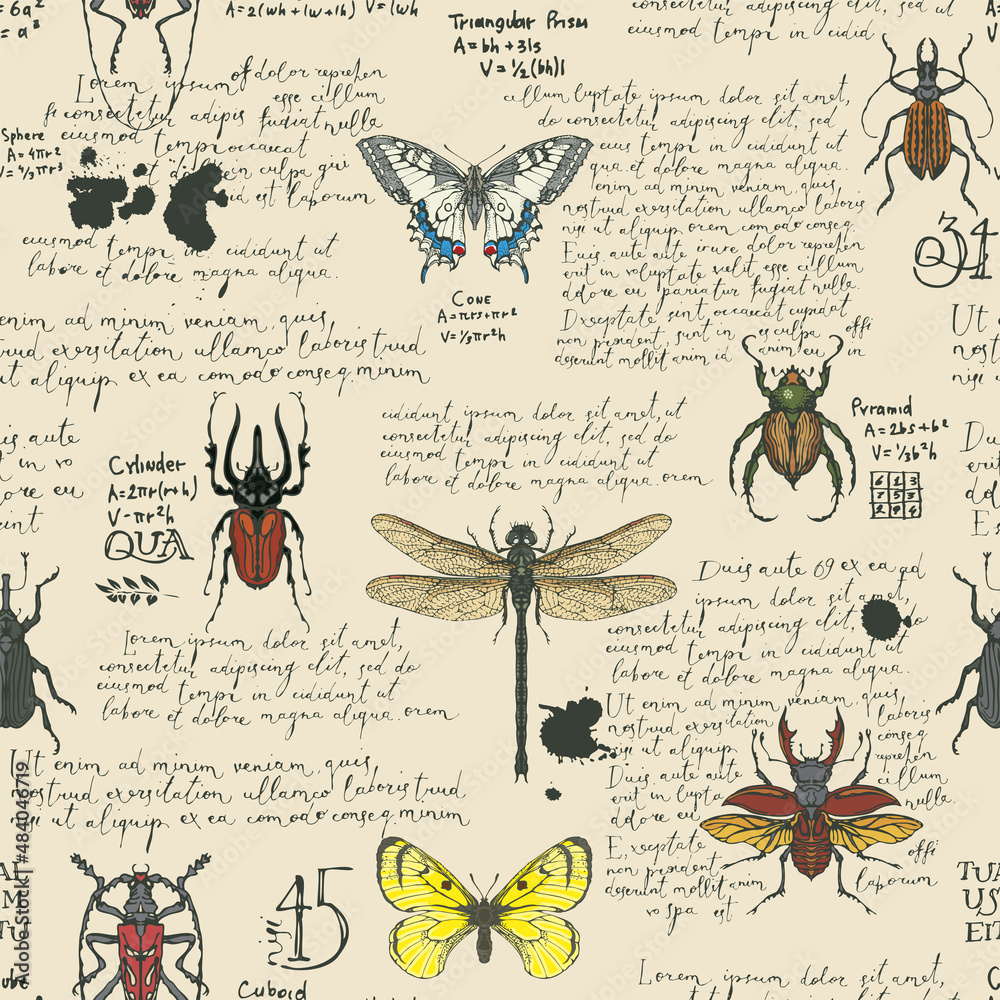 = 6a²
= a³
A=2(wh+(w+lh)
V=(wh
Triangular Prism
A=bh+3ls
V=½(bh)l
consectetur adipiscing elit, sed do
eiusmod tempi in cidid
Lorem ipsum of dolor reprehen
esse cillum
consectetur adipis fugiat nulla
Sphere
A=4πr²
V=4/3πr³
eiusmod tempi occaecat
et dol in culpa qui
id est laborum
eiusmod tempi in cididunt ut
labore et dolore magna aliqua.
cillum luptate ipsum dolor sit amet,
do consectetur adipiscing elit, sed do
eius tempi in cididunt ut
qua. et dolore magna aliqua.
enim ad minim veniam, quis,
nostrud exersitation ullamco laboris
nisi ut aliquip ex ea comodo conseq.
Euis aute aute irure dolor reprehen
erit in voluptate velit esse cillum
dolore eu pariatur fugiat nulla.
Dxceptate sint occaecat cupidat
non proident, sunt in es culpa offi
deserunt mollit anim id anim eu in
34
Q
Cone
A=πrs+πr²
V=⅓πr²h
enim ad minim veniam, quis,
trud exersitation ullamco laboris trud
ut aliquip ex ea comodo conseq. minim
Ut
nost
nisi
cididunt ipsum dolor sit amet, ut
consectetur adipiscing elit, sed do
eiusmod tempi in cididunt ut
labore et dolore magna aliqua. orem
Pyramid
A=2bs+b²
V=⅓b²h
6 1 3
7 5 3
2 9 4
uis aute
t in vo
ore eu
cint
Cylinder
A=2πr(r+h)
V-πr²h
QUA
Duis aute 69 ex ea ad
ipsum dolor sit amet,
consectetur adipiscing elit, sed do
eiusmod tempi in cididunt ut
labore et dolore magna aliqua.
Lorem ipsum dolor sit amet,
consectetur adipiscing elit, sed do
eiusmod tempi in cididunt ut
labore et dolore magna aliqua. orem
Ut enim ad minim veniam, quis,
nostrud exersitation
nisi ut aliquip
laboris
conseq
reprehen
cillum
nulla.
Duis aute aute
erit in lupta
dolore eu
E, xceptate
non proident
deserunt mollit anim
vo spa est
offi
laborum
Ut enim ad minim veniam, quis,
nostrud exersitation ullamco laboris trud
nisi ut aliquip ex ea comodo conseq. minim
45
Cuboid
TUA
US
EIT
Lorem ipsum dolor sit amet,
consectetur adipiscing elit, sed do
Adobe Stock | #484046719